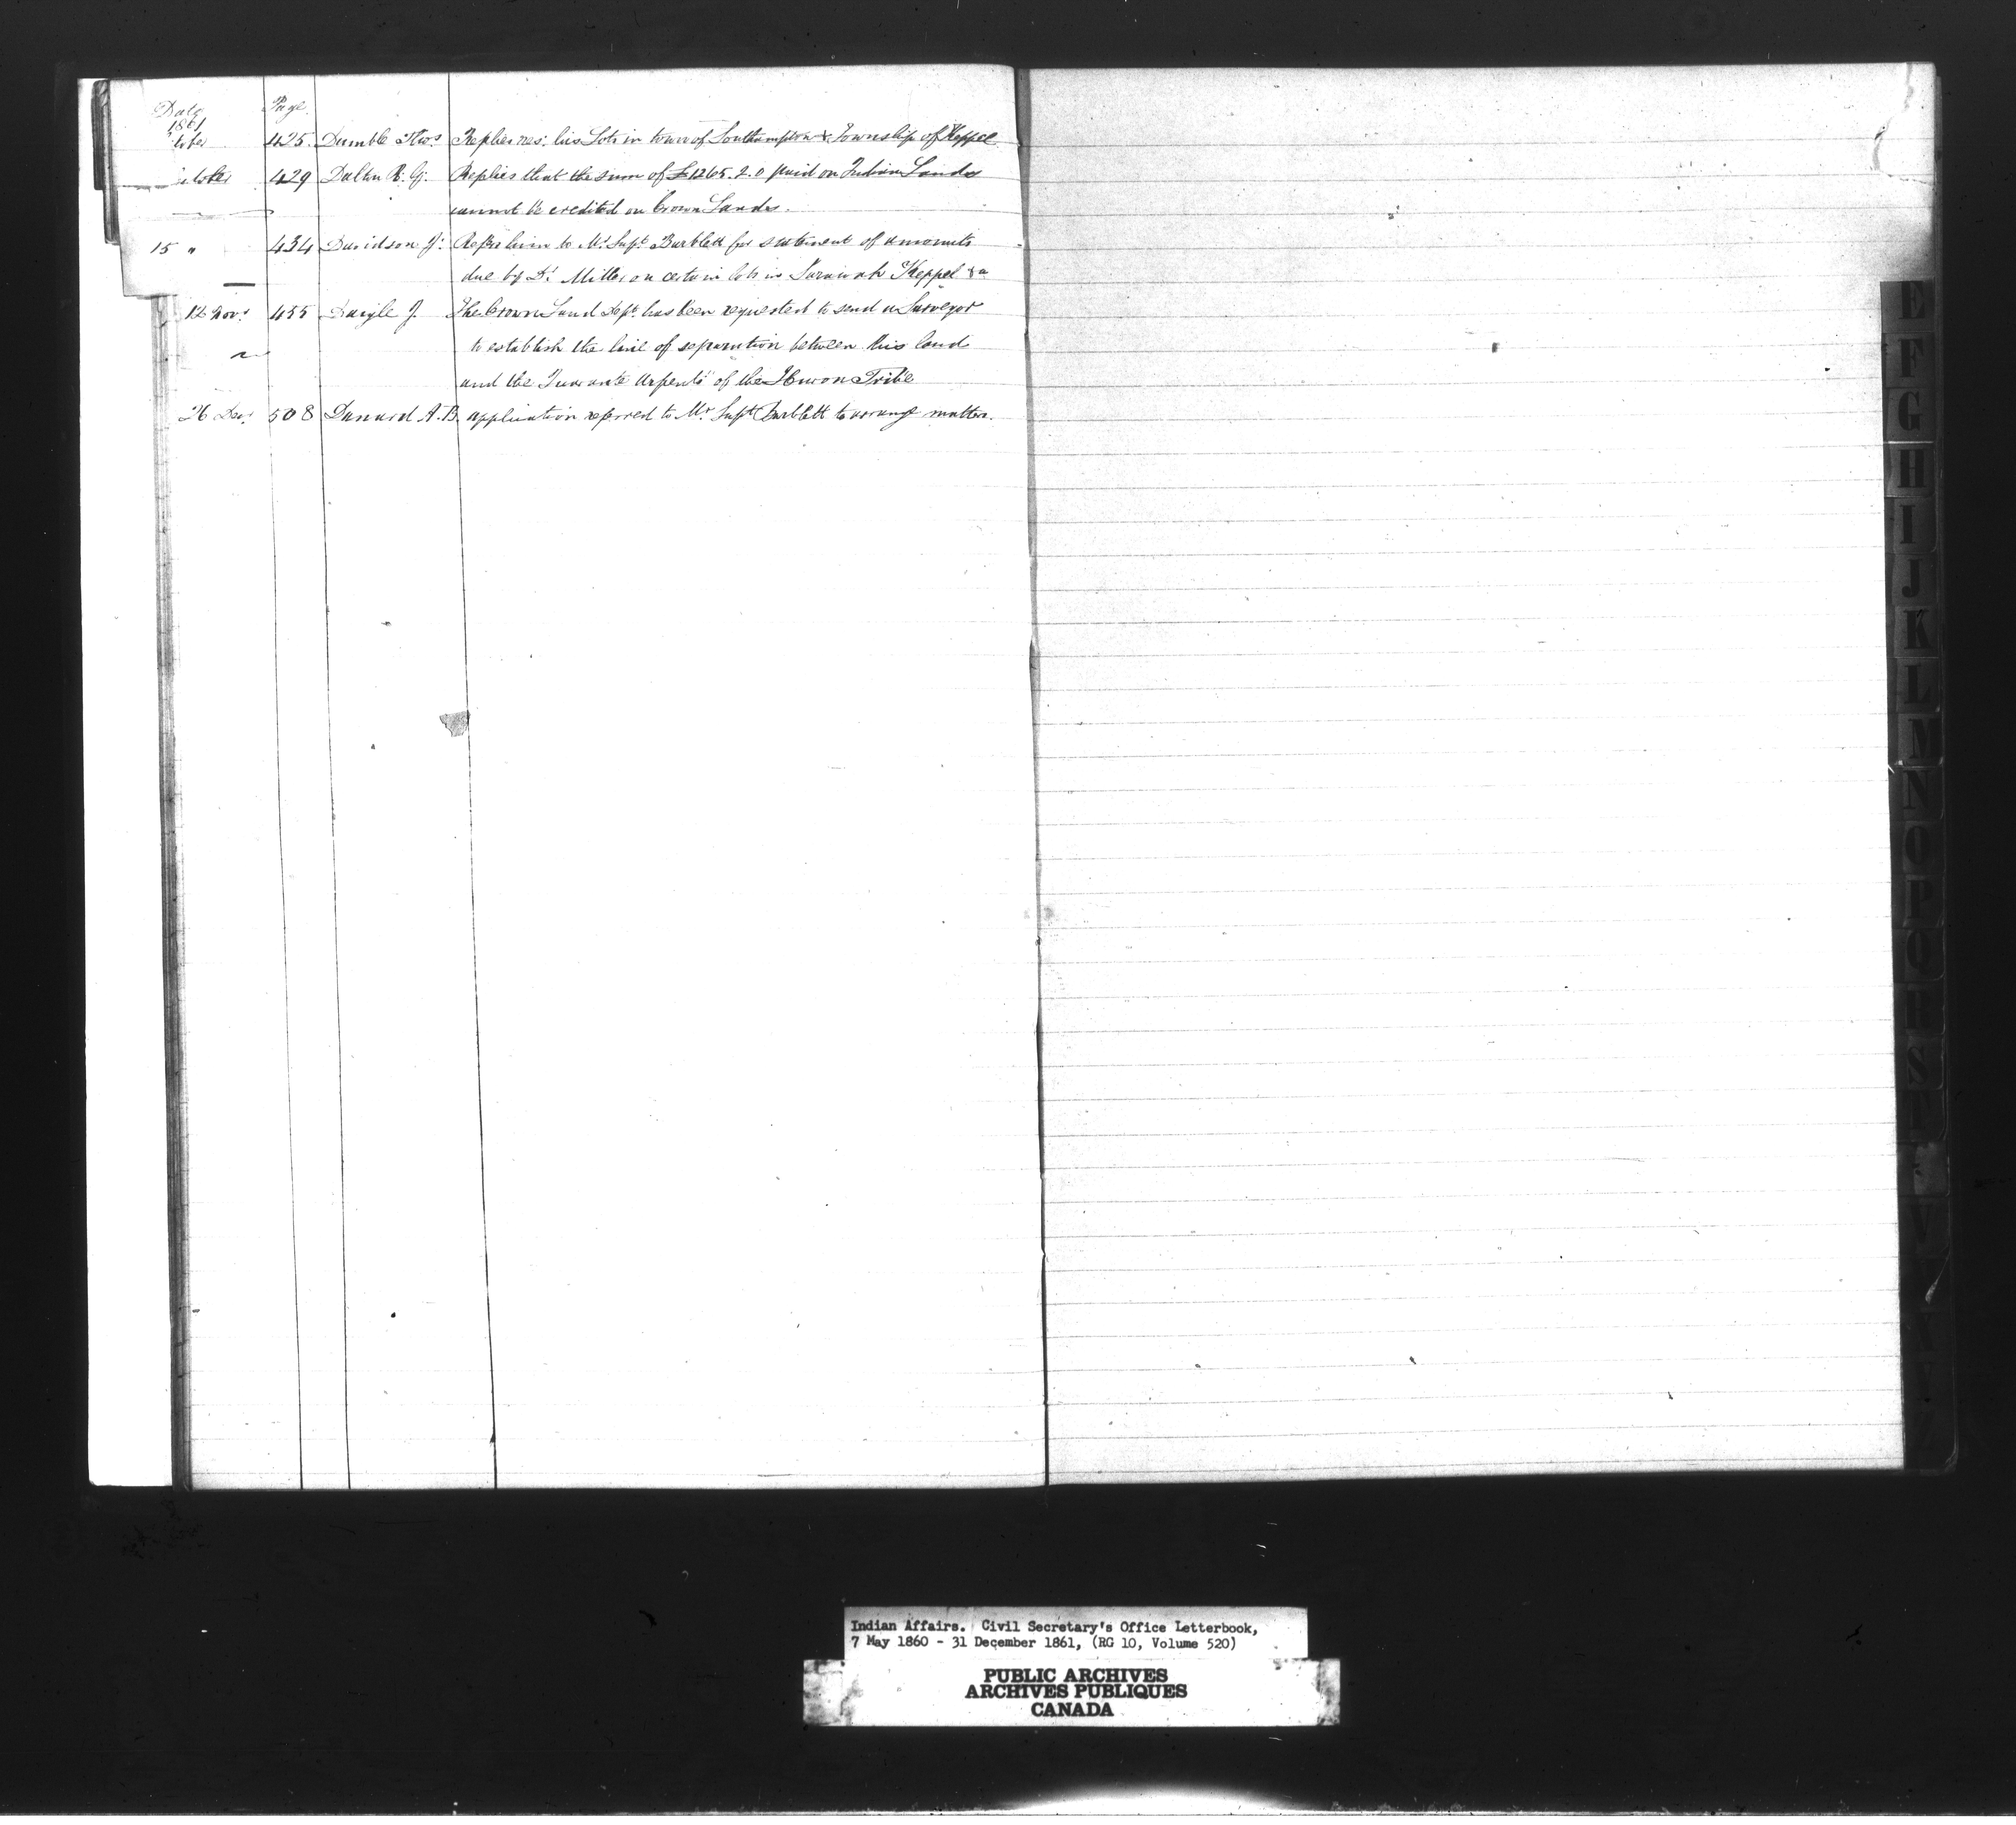 Date Page
1861
tober 425. Dumble Thos Replies res: his Lots in town of Southampton & Township of Keppel
ctober 429 Dalton R. G. Replies that the sum of £1265.2.0 paid on Indian Lands
cannot be credited on Crown Lands.
15 " 434 Davidson J: Refers him to Mr. Supt. Bartlett for statement of amounts
due by Dr. Miller on certain lots in Sarawak Keppel &a
12 Novr 455 Daigle J. The Crown Land Dept. has been requested to send a Surveyor
to establish the line of separation between his land
and the Quarante Arpents" of the Huron Tribe
26 Decr. 508 A. B. application referred to Mr Supt Bartlett to arrange matter.
E
F
G
H
I
J
K
L
M
N
O
P
Q
R
S
T
V
Indian Affairs. Civil Secretary's Office Letterbook,
7 May 1860 - 31 December 1861, (RG 10, Volume 520)
PUBLIC ARCHIVES
ARCHIVES PUBLIQUES
CANADA